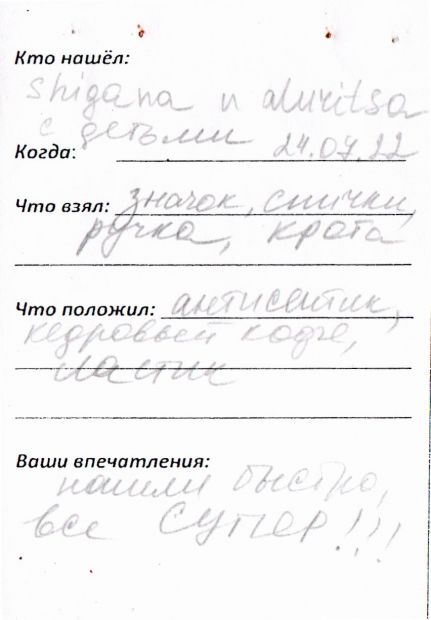 Кто нашёл:
shigana и alukitsa
с детьми
Когда: 24.07.22
Что взял: значок, спички,
ручка, крота
Что положил: антисептик,
кедровый кофе,
ластик
Ваши впечатления:
нашли быстро,
все супер!!!